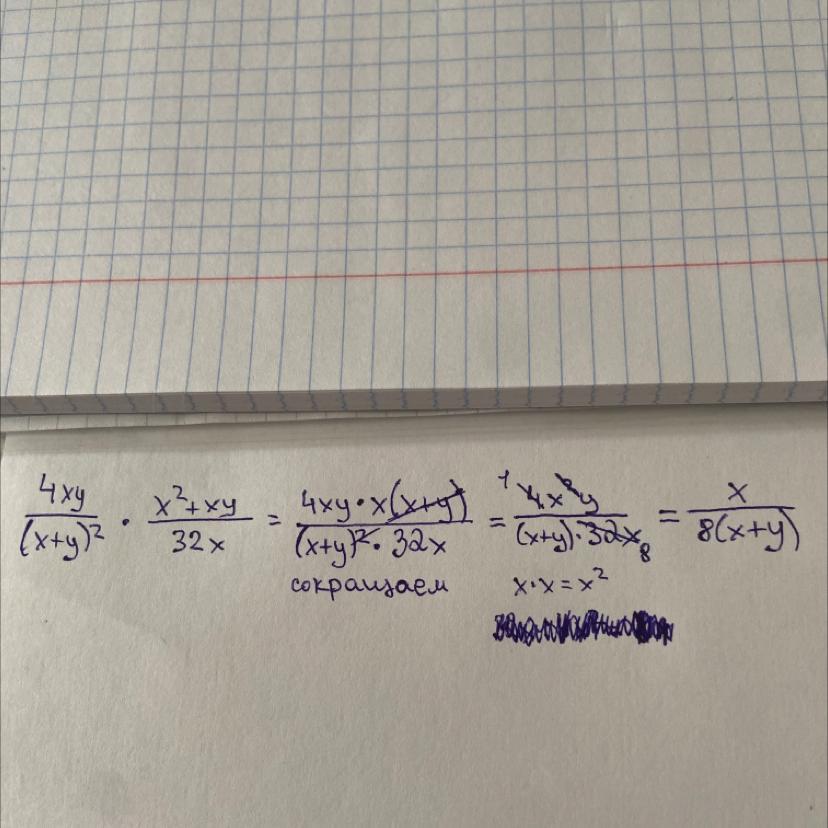 4xy/(x+y)² · x²+xy/32x = 4xy·x(x+y)/(x+y)²·32x = 1 4x²y/(x+y)·32x 8 = x/8(x+y)
сокращаем x·x=x²